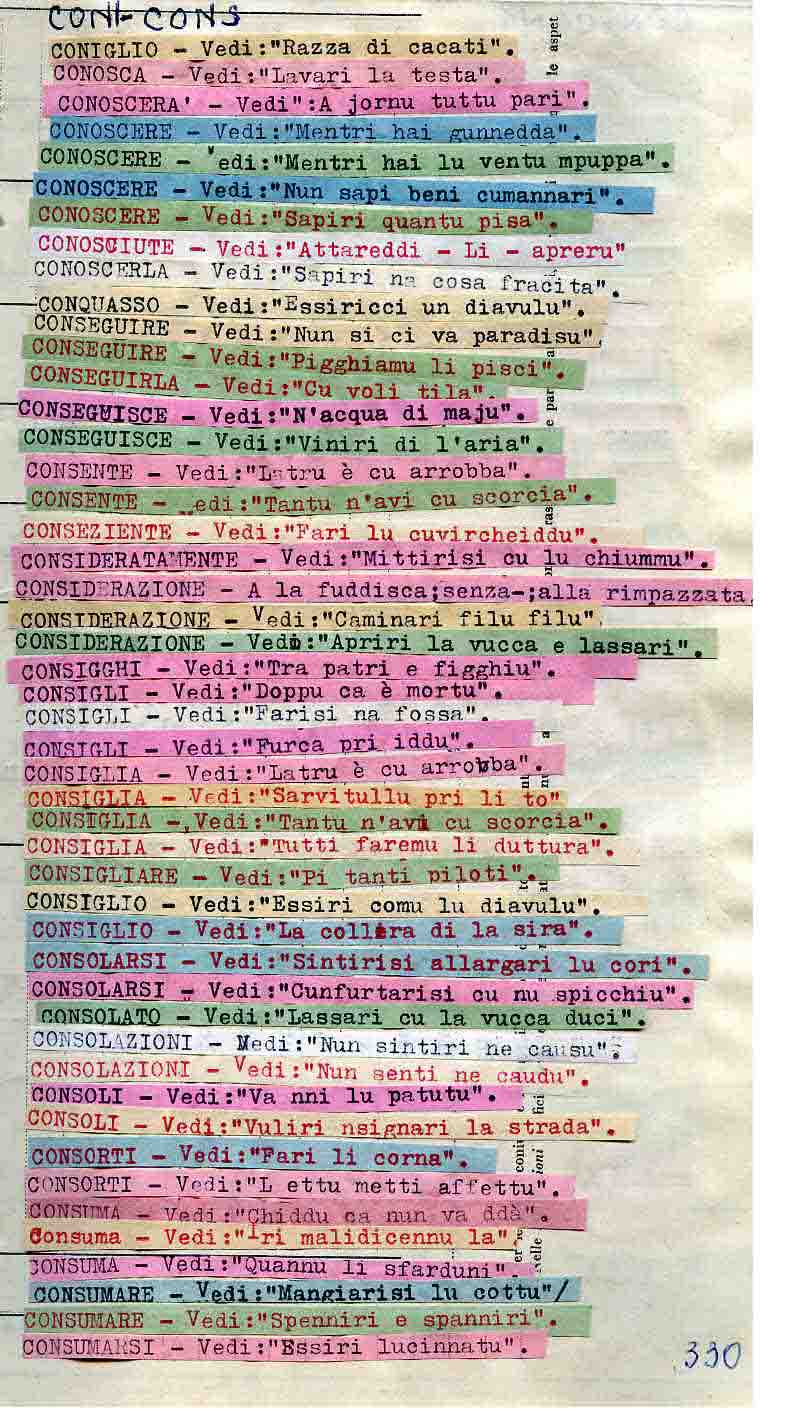 CONI-CONS
CONIGLIO - Vedi:"Razza di cacati".
CONOSCA - Vedi:"Lavari la testa".
CONOSCERA' - Vedi":A jornu tuttu pari".
CONOSCERE - Vedi:"Mentri hai gunnedda".
CONOSCERE - Vedi:"Mentri hai lu ventu mpuppa".
CONOSCERE - Vedi:"Nun sapi beni cumannari".
CONOSCERE - Vedi:"Sapiri quantu pisa".
CONOSCIUTE - Vedi:"Attareddi - Li - apreru"
CONOSCERLA - Vedi:"Sapiri na cosa fracita".
CONQUASSO - Vedi:"Essiricci un diavulu".
CONSEGUIRE - Vedi:"Nun si ci va paradisu".
CONSEGUIRE - Vedi:"Pigghiamu li pisci".
CONSEGUIRLA - Vedi:"Cu voli tila".
CONSEGUISCE - Vedi:"N'acqua di maju".
CONSEGUISCE - Vedi:"Viniri di l'aria".
CONSENTE - Vedi:"Latru è cu arrobba".
CONSENTE - Vedi:"Tantu n'avi cu scorcia".
CONSEZIENTE - Vedi:"Fari lu cuvircheiddu".
CONSIDERATAMENTE - Vedi:"Mittirisi cu lu chiummu".
CONSIDERAZIONE - A la fuddisca;senza-;alla rimpazzata.
CONSIDERAZIONE - Vedi:"Caminari filu filu".
CONSIDERAZIONE - Vedi:"Apriri la vucca e lassari".
CONSIGGHI - Vedi:"Tra patri e figghiu".
CONSIGLI - Vedi:"Doppu ca è mortu".
CONSIGLI - Vedi:"Farisi na fossa".
CONSIGLI - Vedi:"Furca pri iddu".
CONSIGLIA - Vedi:"Latru è cu arrobba".
CONSIGLIA - Vedi:"Sarvitullu pri li to"
CONSIGLIA -,Vedi:"Tantu n'avi cu scorcia".
CONSIGLIA - Vedi:"Tutti faremu li duttura".
CONSIGLIARE - Vedi:"Pi tanti piloti".
CONSIGLIO - Vedi:"Essiri comu lu diavulu".
CONSIGLIO - Vedi:"La collera di la sira".
CONSOLARSI - Vedi:"Sintirisi allargari lu cori".
CONSOLARSI - Vedi:"Cunfurtarisi cu nu spicchiu".
CONSOLATO - Vedi:"Lassari cu la vucca duci".
CONSOLAZIONI - Vedi:"Nun sintiri ne causu".
CONSOLAZIONI - Vedi:"Nun senti ne caudu".
CONSOLI - Vedi:"Va nni lu patutu".
CONSOLI - Vedi:"Vuliri nsignari la strada".
CONSORTI - Vedi:"Fari li corna".
CONSORTI - Vedi:"L ettu metti affettu".
CONSUMA - Vedi:"Chiddu ca nun va ddà".
Consuma - Vedi:"Iri malidicennu la".
CONSUMA - Vedi:"Quannu li sfarduni".
CONSUMARE - Vedi:"Mangiarisi lu cottu"/
CONSUMARE - Vedi:"Spenniri e spanniri".
CONSUMARSI - Vedi:"Essiri lucinnatu".
330